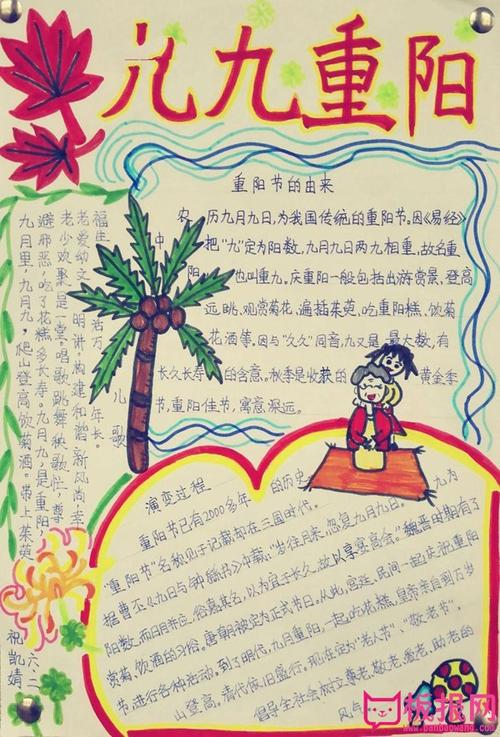 九九重阳
重阳节的由来
农历九月九日,为我国传统的重阳节。因《易经》
中把"九"定为阳数,九月九日两九相重,故名重
阳,也叫重九。庆重阳一般包括出游赏景、登高
远眺、观赏菊花、遍插茱萸、吃重阳糕、饮菊
花酒等,因与"久久"同音,九又是最大数,有
长久长寿的含意。秋季是收获的黄金季
节,重阳佳节,寓意深远。
儿歌
九月里,九月九,爬山登高饮菊酒。带上茱萸
避邪恶,吃了花糕多长寿。九月九,是重阳,
老少欢聚是一堂。唱歌跳舞秧歌忙,尊
老爱幼文明讲。构建和谐新风尚,幸
福生活万年长。
演变过程
重阳节已有2000多年的历史,
"重阳"名称见于记载却在三国时代。
据曹丕《九日与钟繇书》中载:"岁往月来,忽复九月九日。九为
阳数,而日月并应,俗嘉其名,以为宜于长久,故以享宴高会。"魏晋时期有了
赏菊、饮酒的习俗。唐朝被定为正式节日。从此,宫廷、民间一起庆祝重阳
节,进行各种活动。到了明代,九月重阳,一起吃花糕,皇帝亲自到万岁
山登高。清代依旧盛行。现在定为"老人节"、"敬老节",
倡导全社会树立尊老、敬老、爱老、助老的
风气
六、二
祝凯婧
板报网
www.banbaowang.com